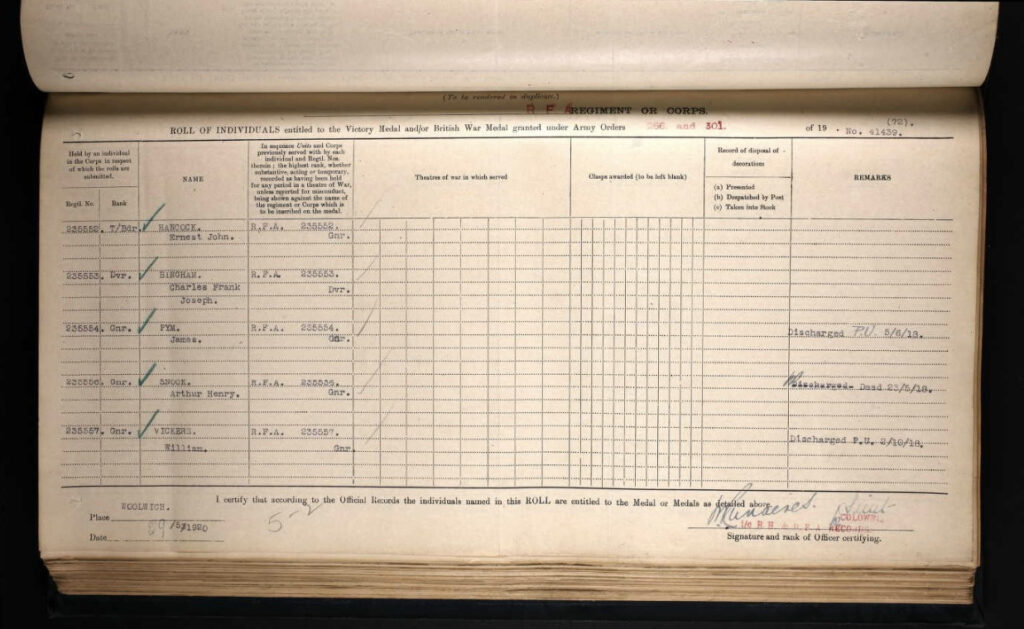 (To be rendered in duplicate.)
R F A REGIMENT OR CORPS.
ROLL OF INDIVIDUALS entitled to the Victory Medal and/or British War Medal granted under Army Orders 266. and 301. of 19 . No. 41439.
(72).
Held by an individual
in the Corps in respect
of which the rolls are
submitted.
Regtl. No.
Rank
NAME
In sequence Units and Corps
previously served with by each
individual and Regtl. Nos.
therein; the highest rank, whether
substantive, acting or temporary,
recorded as having been held
for any period in a theatre of War,
unless reported for misconduct,
being shown against the name of
the regiment or Corps which is
to be inscribed on the medal.
Theatres of war in which served
Clasps awarded (to be left blank)
Record of disposal of
decorations
(a) Presented
(b) Despatched by Post
(c) Taken into Stock
REMARKS
235552. T/Bdr. HANCOCK. R.F.A. 235552.
Ernest John. Gnr.
235553. Dvr. BINGHAM. R.F.A. 235553.
Charles Frank Dvr.
Joseph.
235554. Gnr. PYM. R.F.A. 235554.
James. Gnr. Discharged P.U. 5/6/18.
Gnr. SNOOK. R.F.A.
Arthur Henry. Gnr. Discharged. Dead 23/5/18.
235557. Gnr. VICKERS. R.F.A. 235557.
William. Gnr. Discharged P.U. 2/10/18.
I certify that according to the Official Records the individuals named in this ROLL are entitled to the Medal or Medals as detailed above.
WOOLWICH.
Place
Date /1920
5-2
COLONEL
i/c R H & R F A RECORDS.
Signature and rank of Officer certifying.